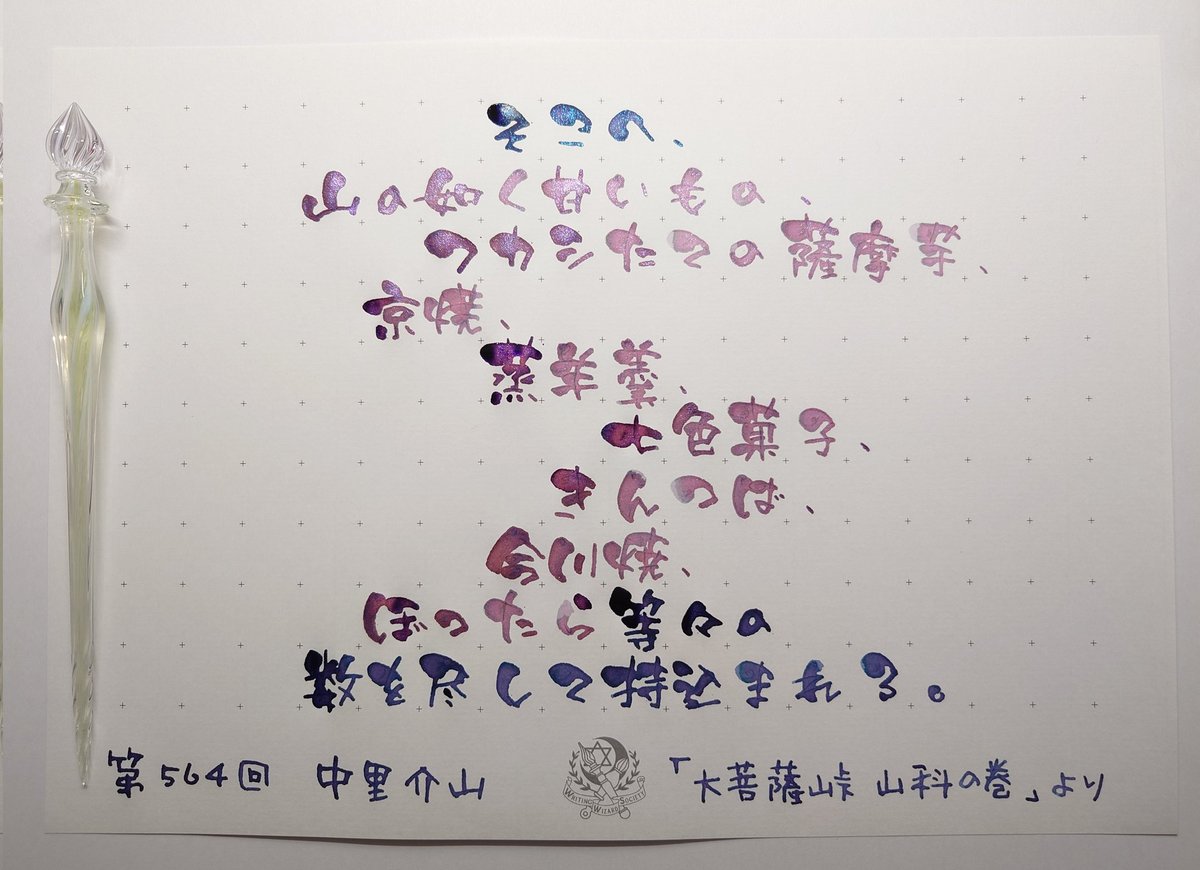 そこへ、
山の如く甘いもの、
フカシたての薩摩芋、
京焼、
蒸羊羹、
七色菓子、
きんつば、
今川焼、
ぼったら等々の
数を尽して持込まれる。
第564回 中里介山 「大菩薩峠 山科の巻」より
WRITING WIZARD SOCIETY